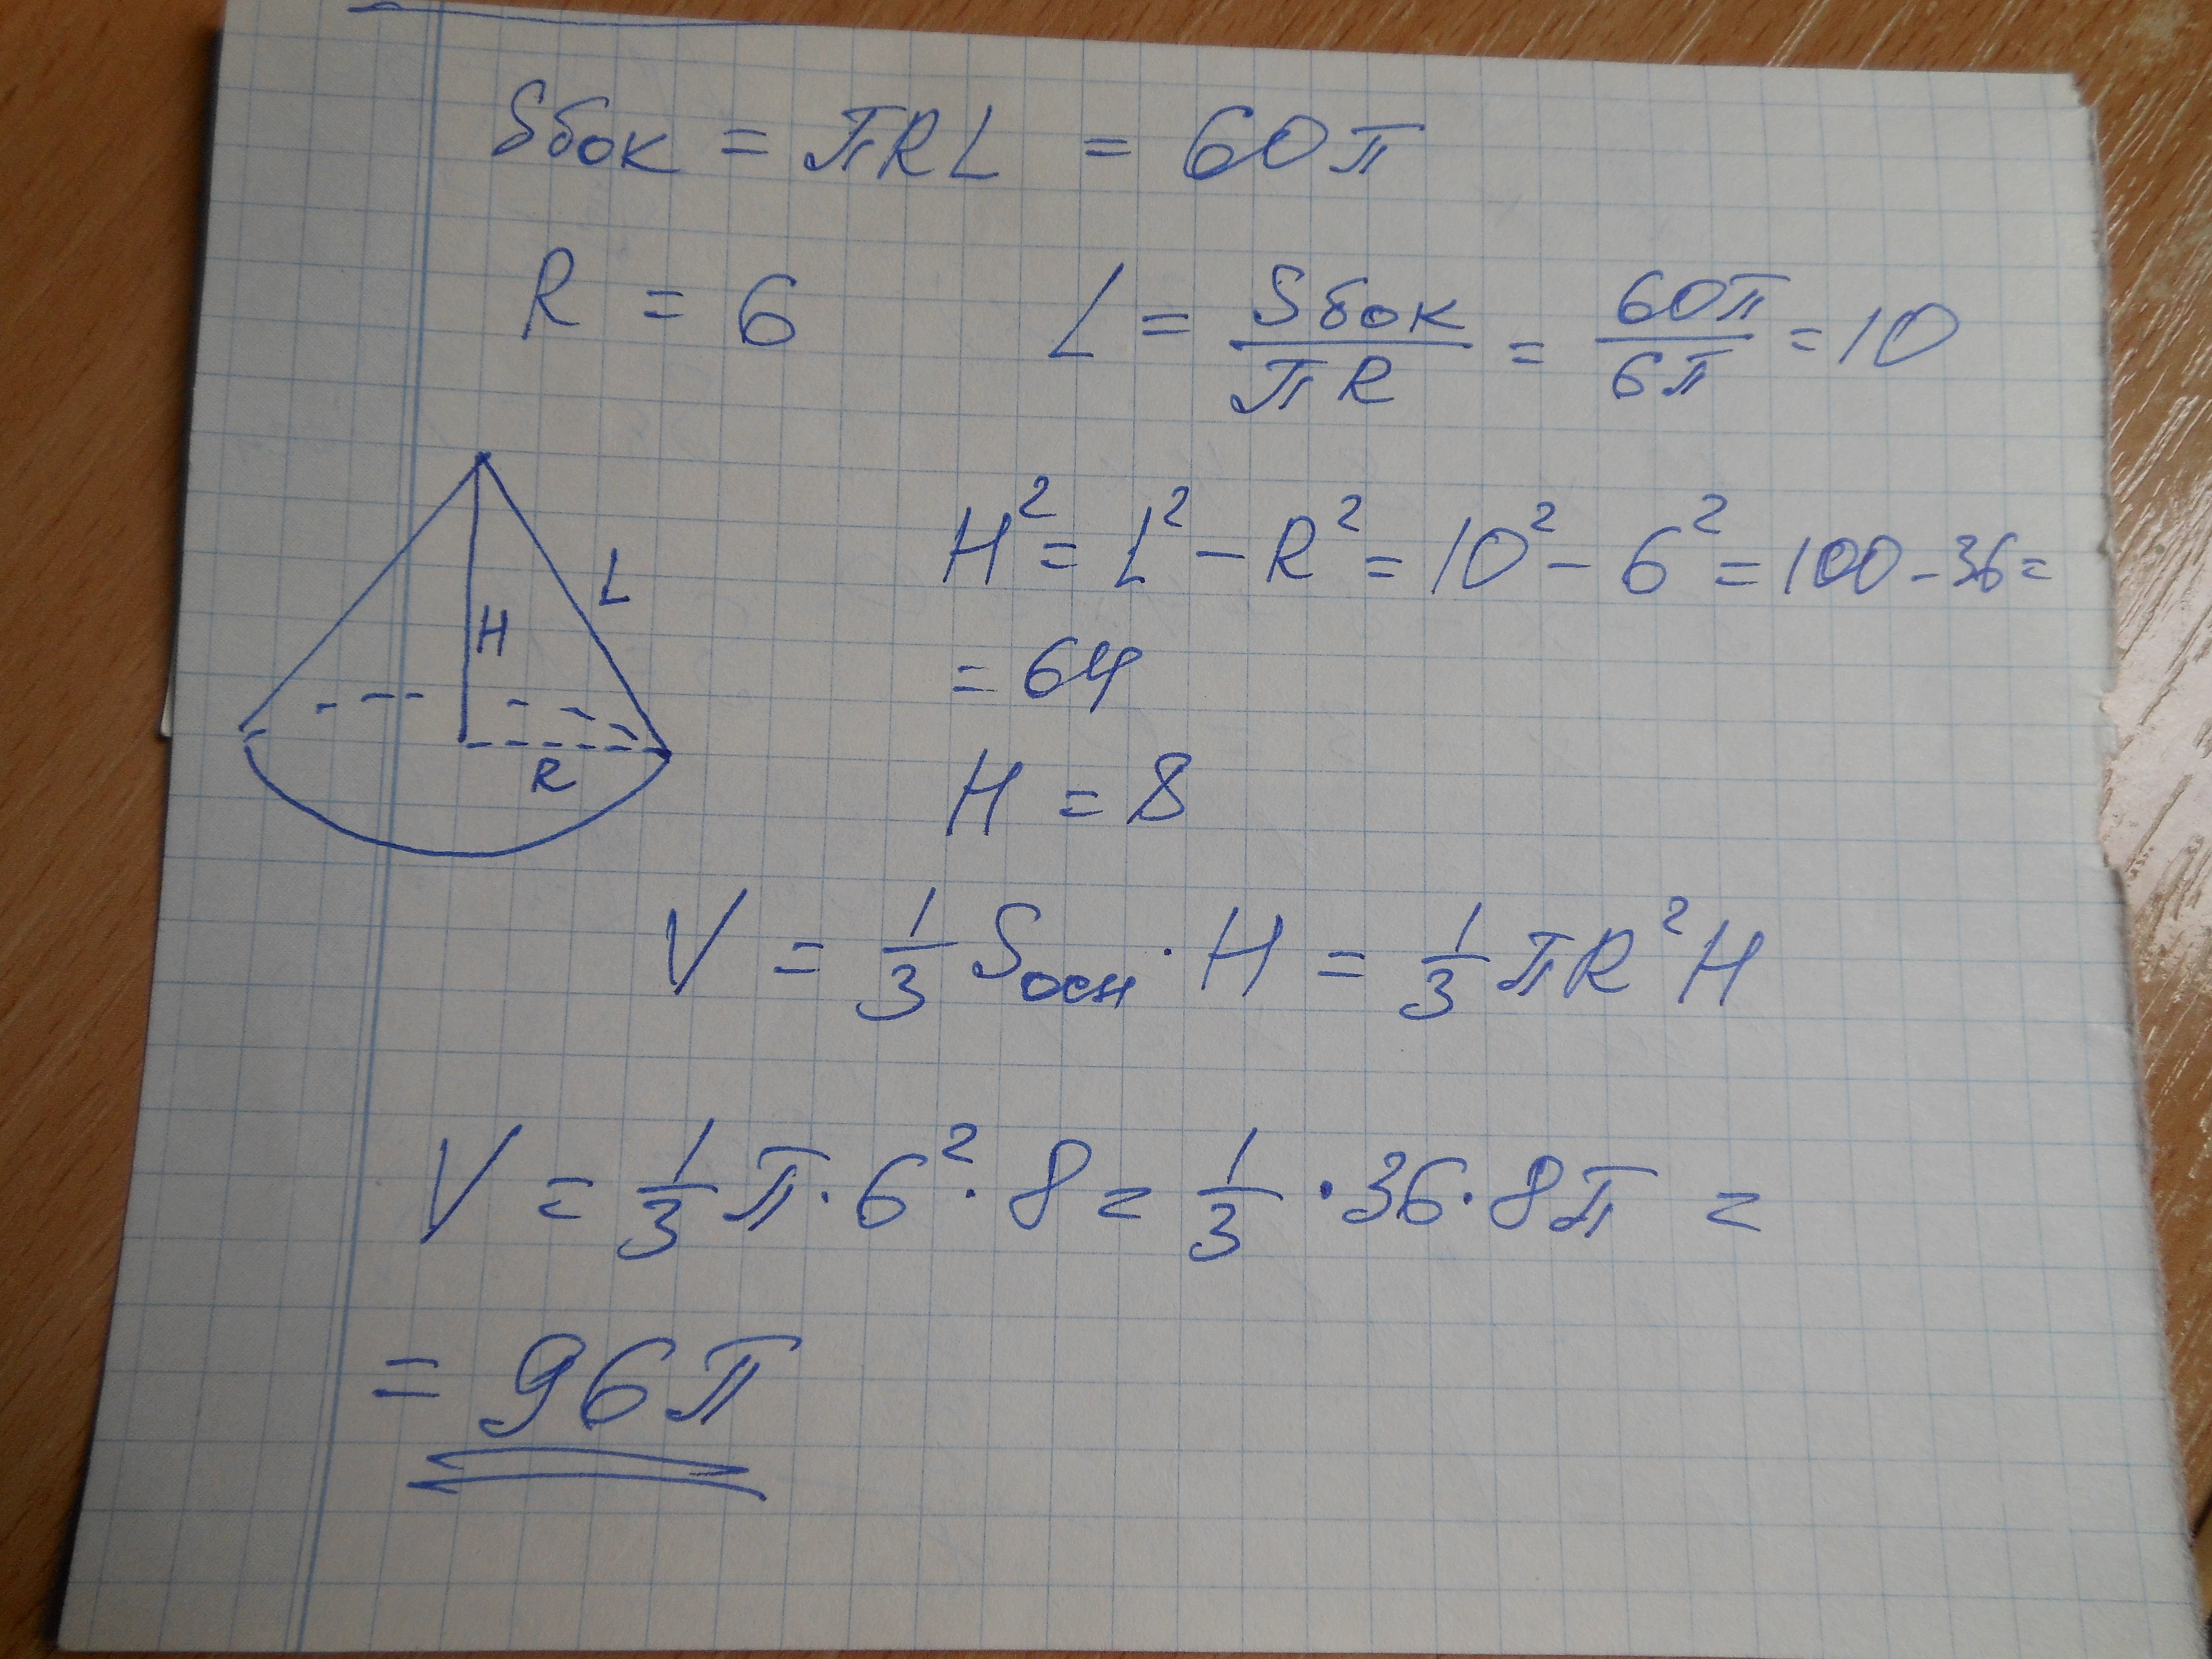 Sбок = πRL = 60π
R = 6 L = Sбок/πR = 60π/6π = 10
H² = L² - R² = 10² - 6² = 100 - 36 =
= 64
H = 8
L
H
R
V = 1/3 Sосн · H = 1/3 πR²H
V = 1/3 π · 6² · 8 = 1/3 · 36 · 8π =
= 96π